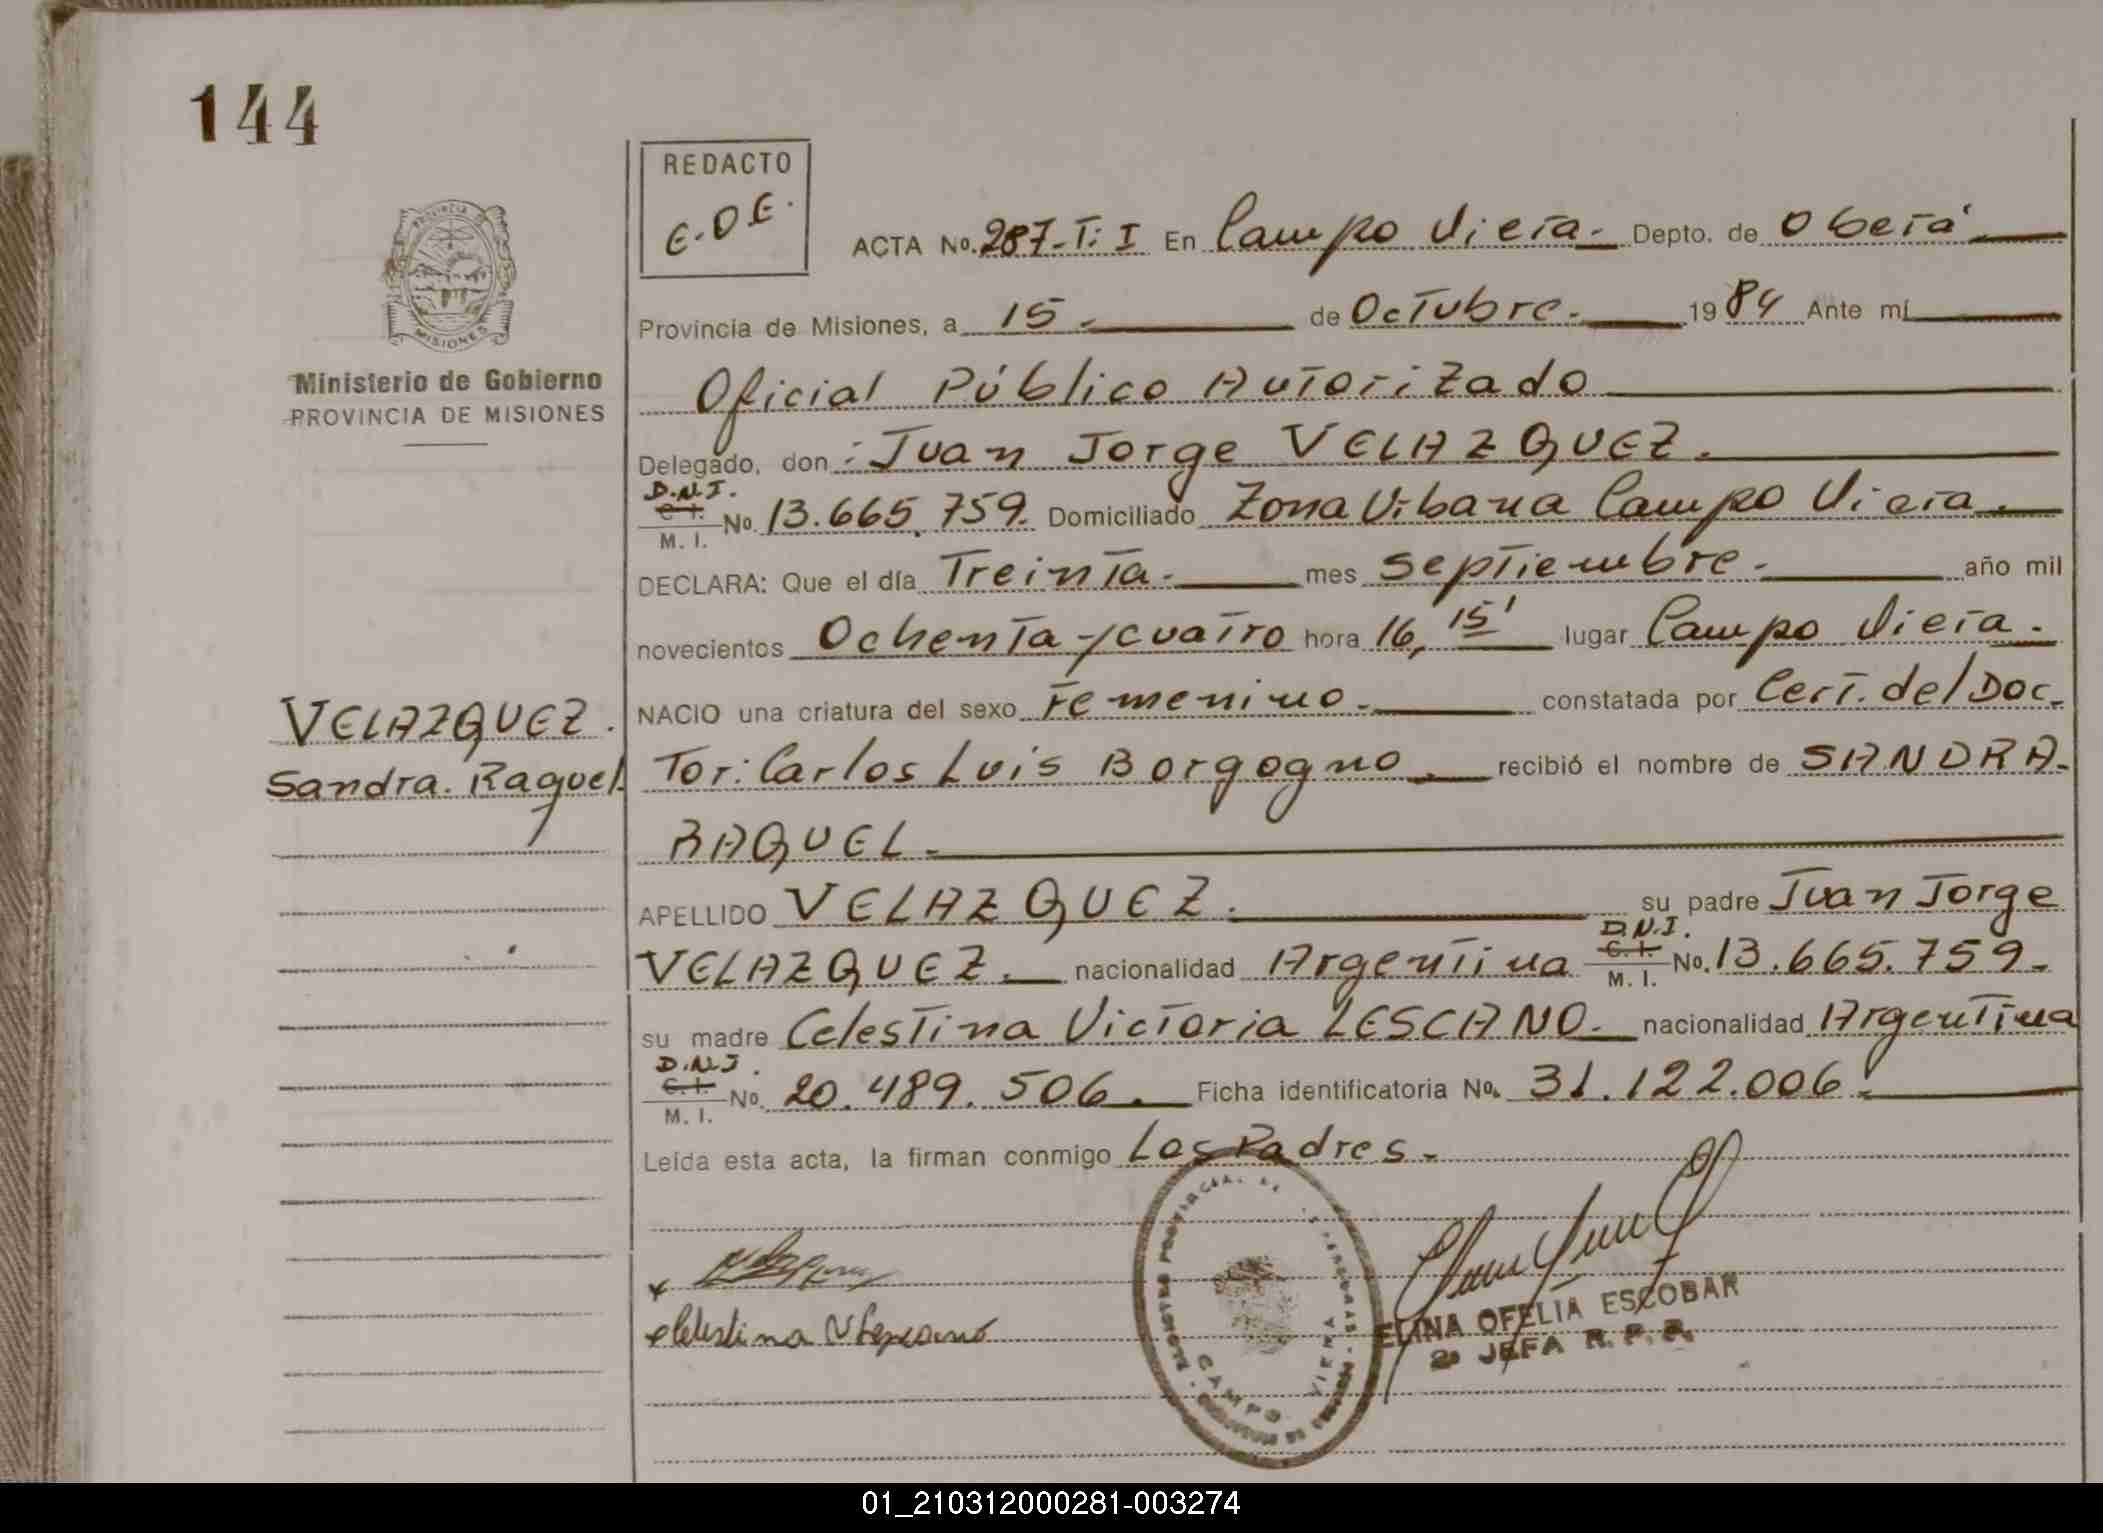 144
REDACTO
E.O.E.
PROVINCIA DE
MISIONES
Ministerio de Gobierno
PROVINCIA DE MISIONES
ACTA No. 287-T: I En Campo Viera.- Depto. de Oberá
Provincia de Misiones, a 15.- de Octubre.- 1984 Ante mí
Oficial Público Autorizado
Delegado, don: Juan Jorge VELAZQUEZ.
D.N.I.
C. I.
M. I. No. 13.665.759. Domiciliado Zona Urbana Campo Viera.
DECLARA: Que el día Treinta.- mes Septiembre.- año mil
novecientos Ochenta y cuatro hora 16, 15' lugar Campo Viera.
NACIO una criatura del sexo Femenino.- constatada por Cert. del Doc-
VELAZQUEZ.
Sandra. Raquel.
tor: Carlos Luis Borgogno. recibió el nombre de SANDRA-
RAQUEL.-
APELLIDO VELAZQUEZ. su padre Juan Jorge
VELAZQUEZ. nacionalidad Argentina D.N.I. C. I. M. I. No. 13.665.759-
su madre Celestina Victoria LESCANO.- nacionalidad Argentina
D.N.I.
C. I.
M. I. No. 20.489.506. Ficha identificatoria No. 31.122.006.
Leída esta acta, la firman conmigo Los Padres.-
Celestina V Lescano
CAMPO VIERA
ELINA OFELIA ESCOBAR
JEFA R. P. P.
01_210312000281-003274